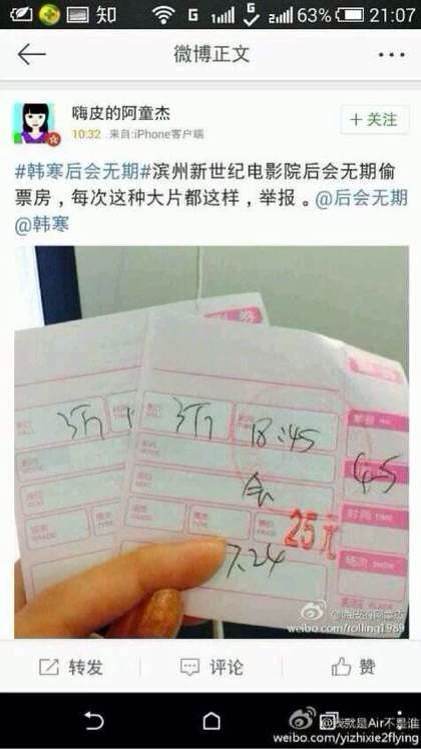 知 G 1 G 2 63% 21:07
微博正文
嗨皮的阿童杰
+ 关注
10:32 来自:iPhone客户端
#韩寒后会无期#滨州新世纪电影院后会无期偷
票房，每次这种大片都这样，举报。@后会无期
@韩寒
18:45
45
会
时间 TIME
25元
7.24
weibo.com/rolling1989
转发
评论
赞
@我就是Air不是谁
weibo.com/yizhixie2flying